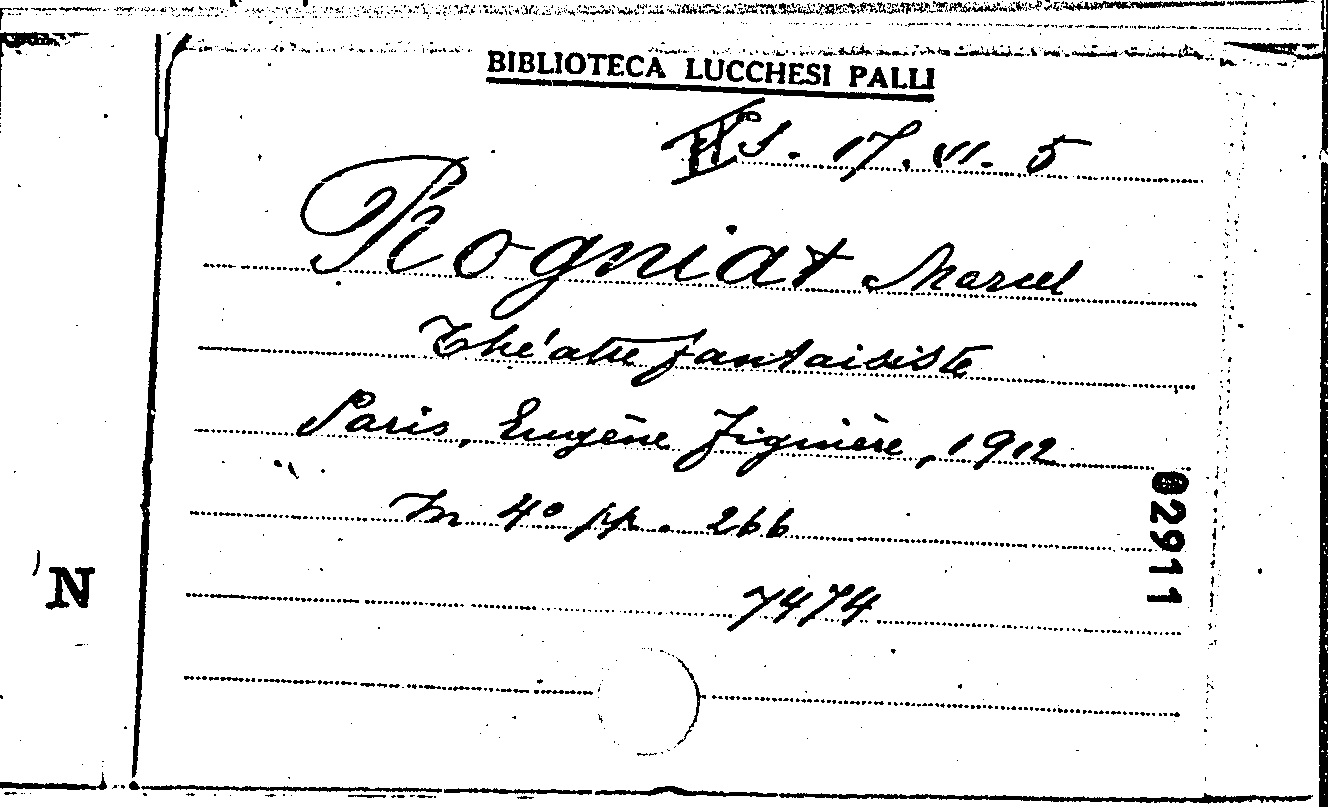 BIBLIOTECA LUCCHESI PALLI
S. 17. VI. 5
Rogniat Marcel
Théatre fantaisiste
Paris, Eugène Figuière, 1912
In 4° pp. 266
02911
N
7474